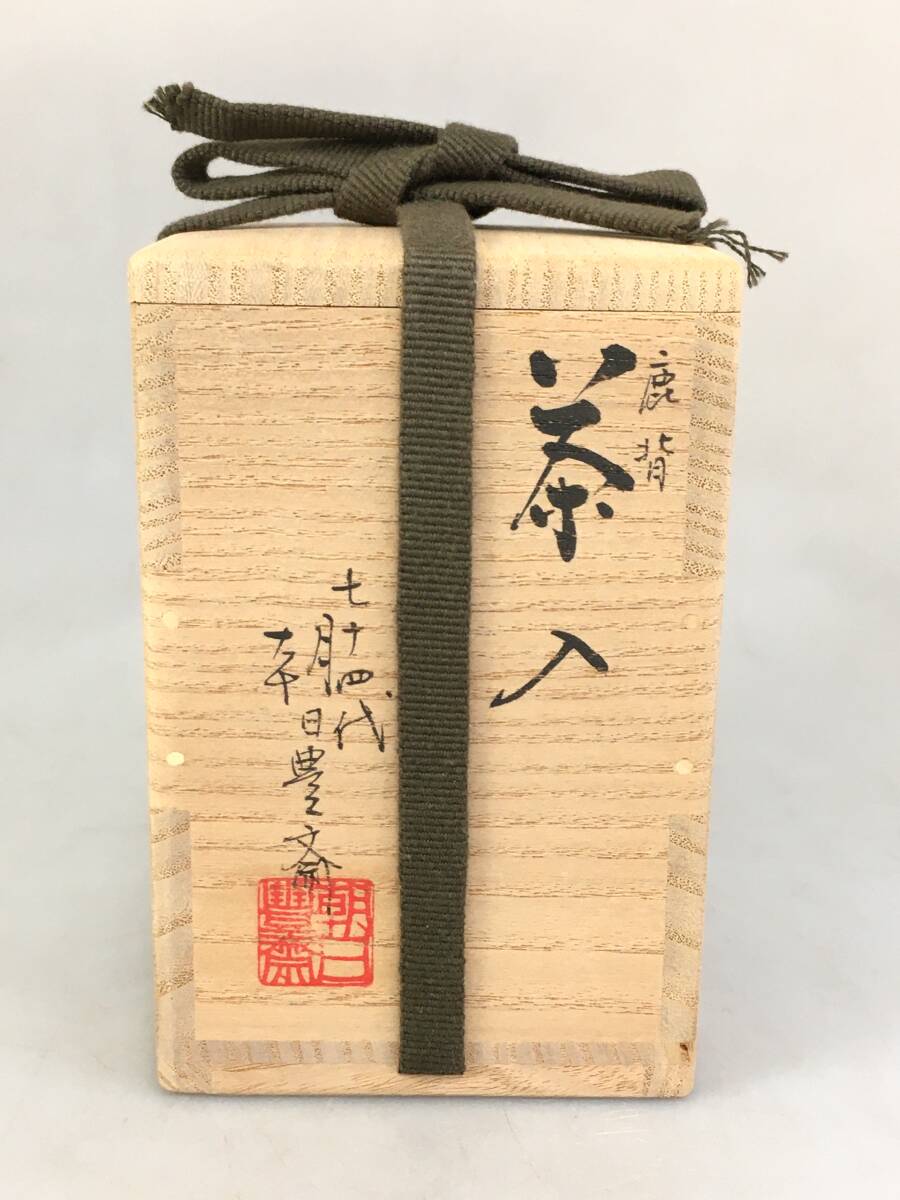 鹿背
茶入
七十四代
朝日豊斎
朝日
豐齋